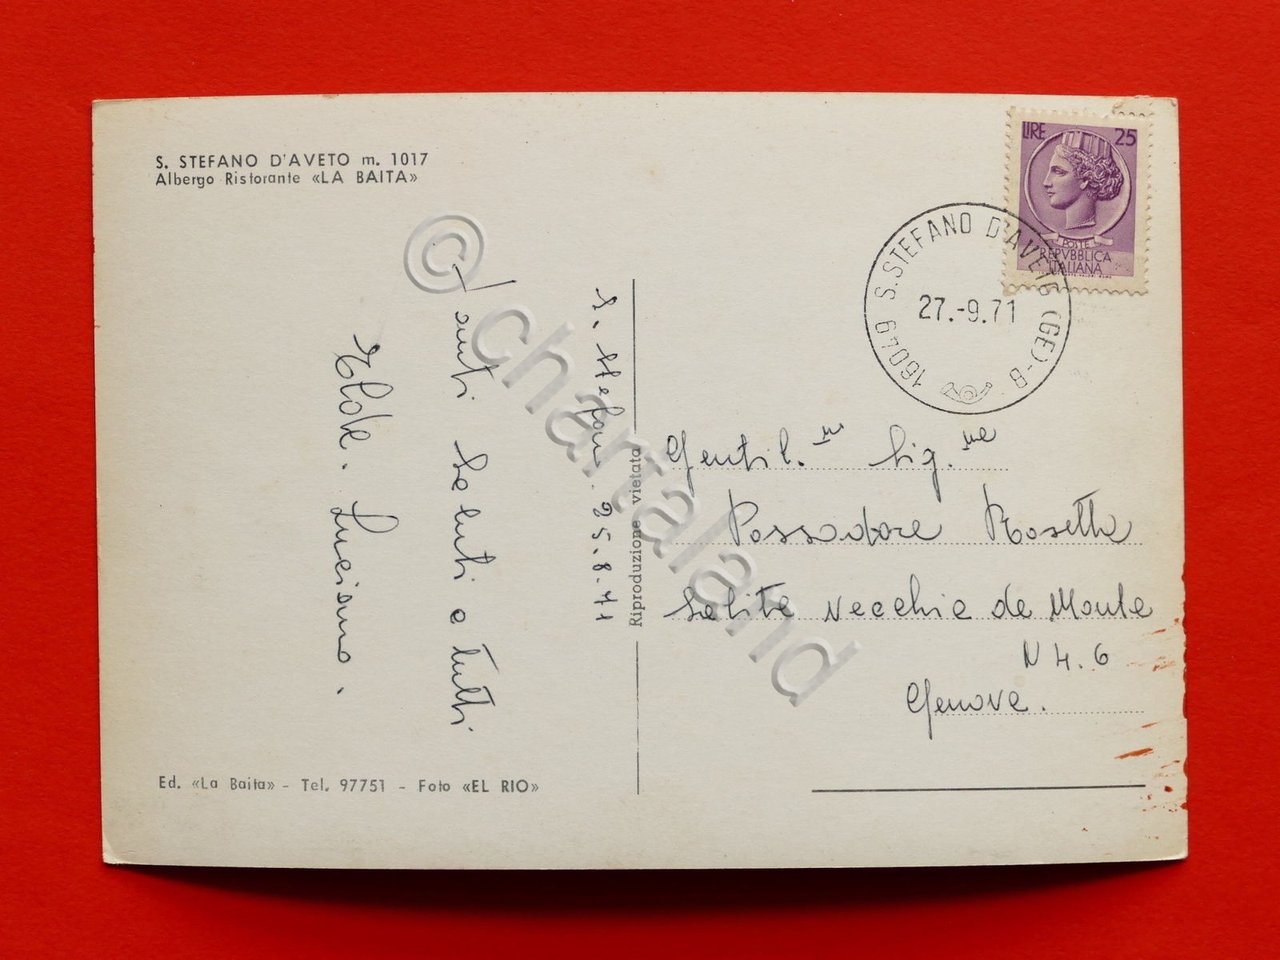 S. STEFANO D'AVETO m. 1017
Albergo Ristorante «LA BAITA»
S. Stefano 25.8.71
Tanti Saluti a tutti
Elda. Luciano.
Ed. «La Baita» - Tel. 97751 - Foto «EL RIO»
Riproduzione vietata
LIRE 25
POSTE
REPVBBLICA
ITALIANA
16049 S. STEFANO D'AVETO (GE) - B
27.-9.71
Gentil.ma Sig.na
Possadore Rosetta
Salita vecchia de Monte
N 4.6
Genova.
© chartaland